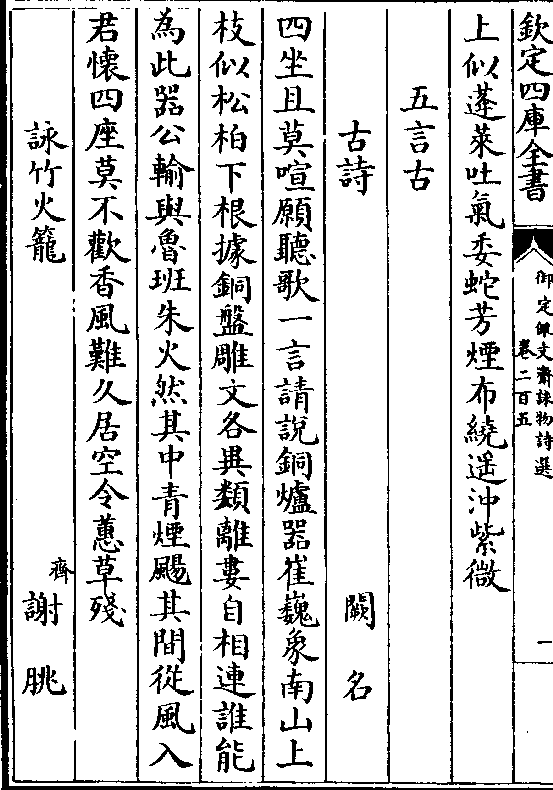 欽定四庫全書
御定佩文齋詠物詩選
卷二百五
一
上似蓬萊吐氣委蛇芳煙布繞遥沖紫微
五言古
古詩 闕名
四坐且莫喧願聽歌一言請說銅爐器崔巍象南山上
枝似松柏下根據銅盤雕文各異類離婁自相連誰能
為此器公輸與魯班朱火然其中青煙颺其間從風入
君懷四座莫不歡香風難久居空令蕙草殘
詠竹火籠 齊謝朓